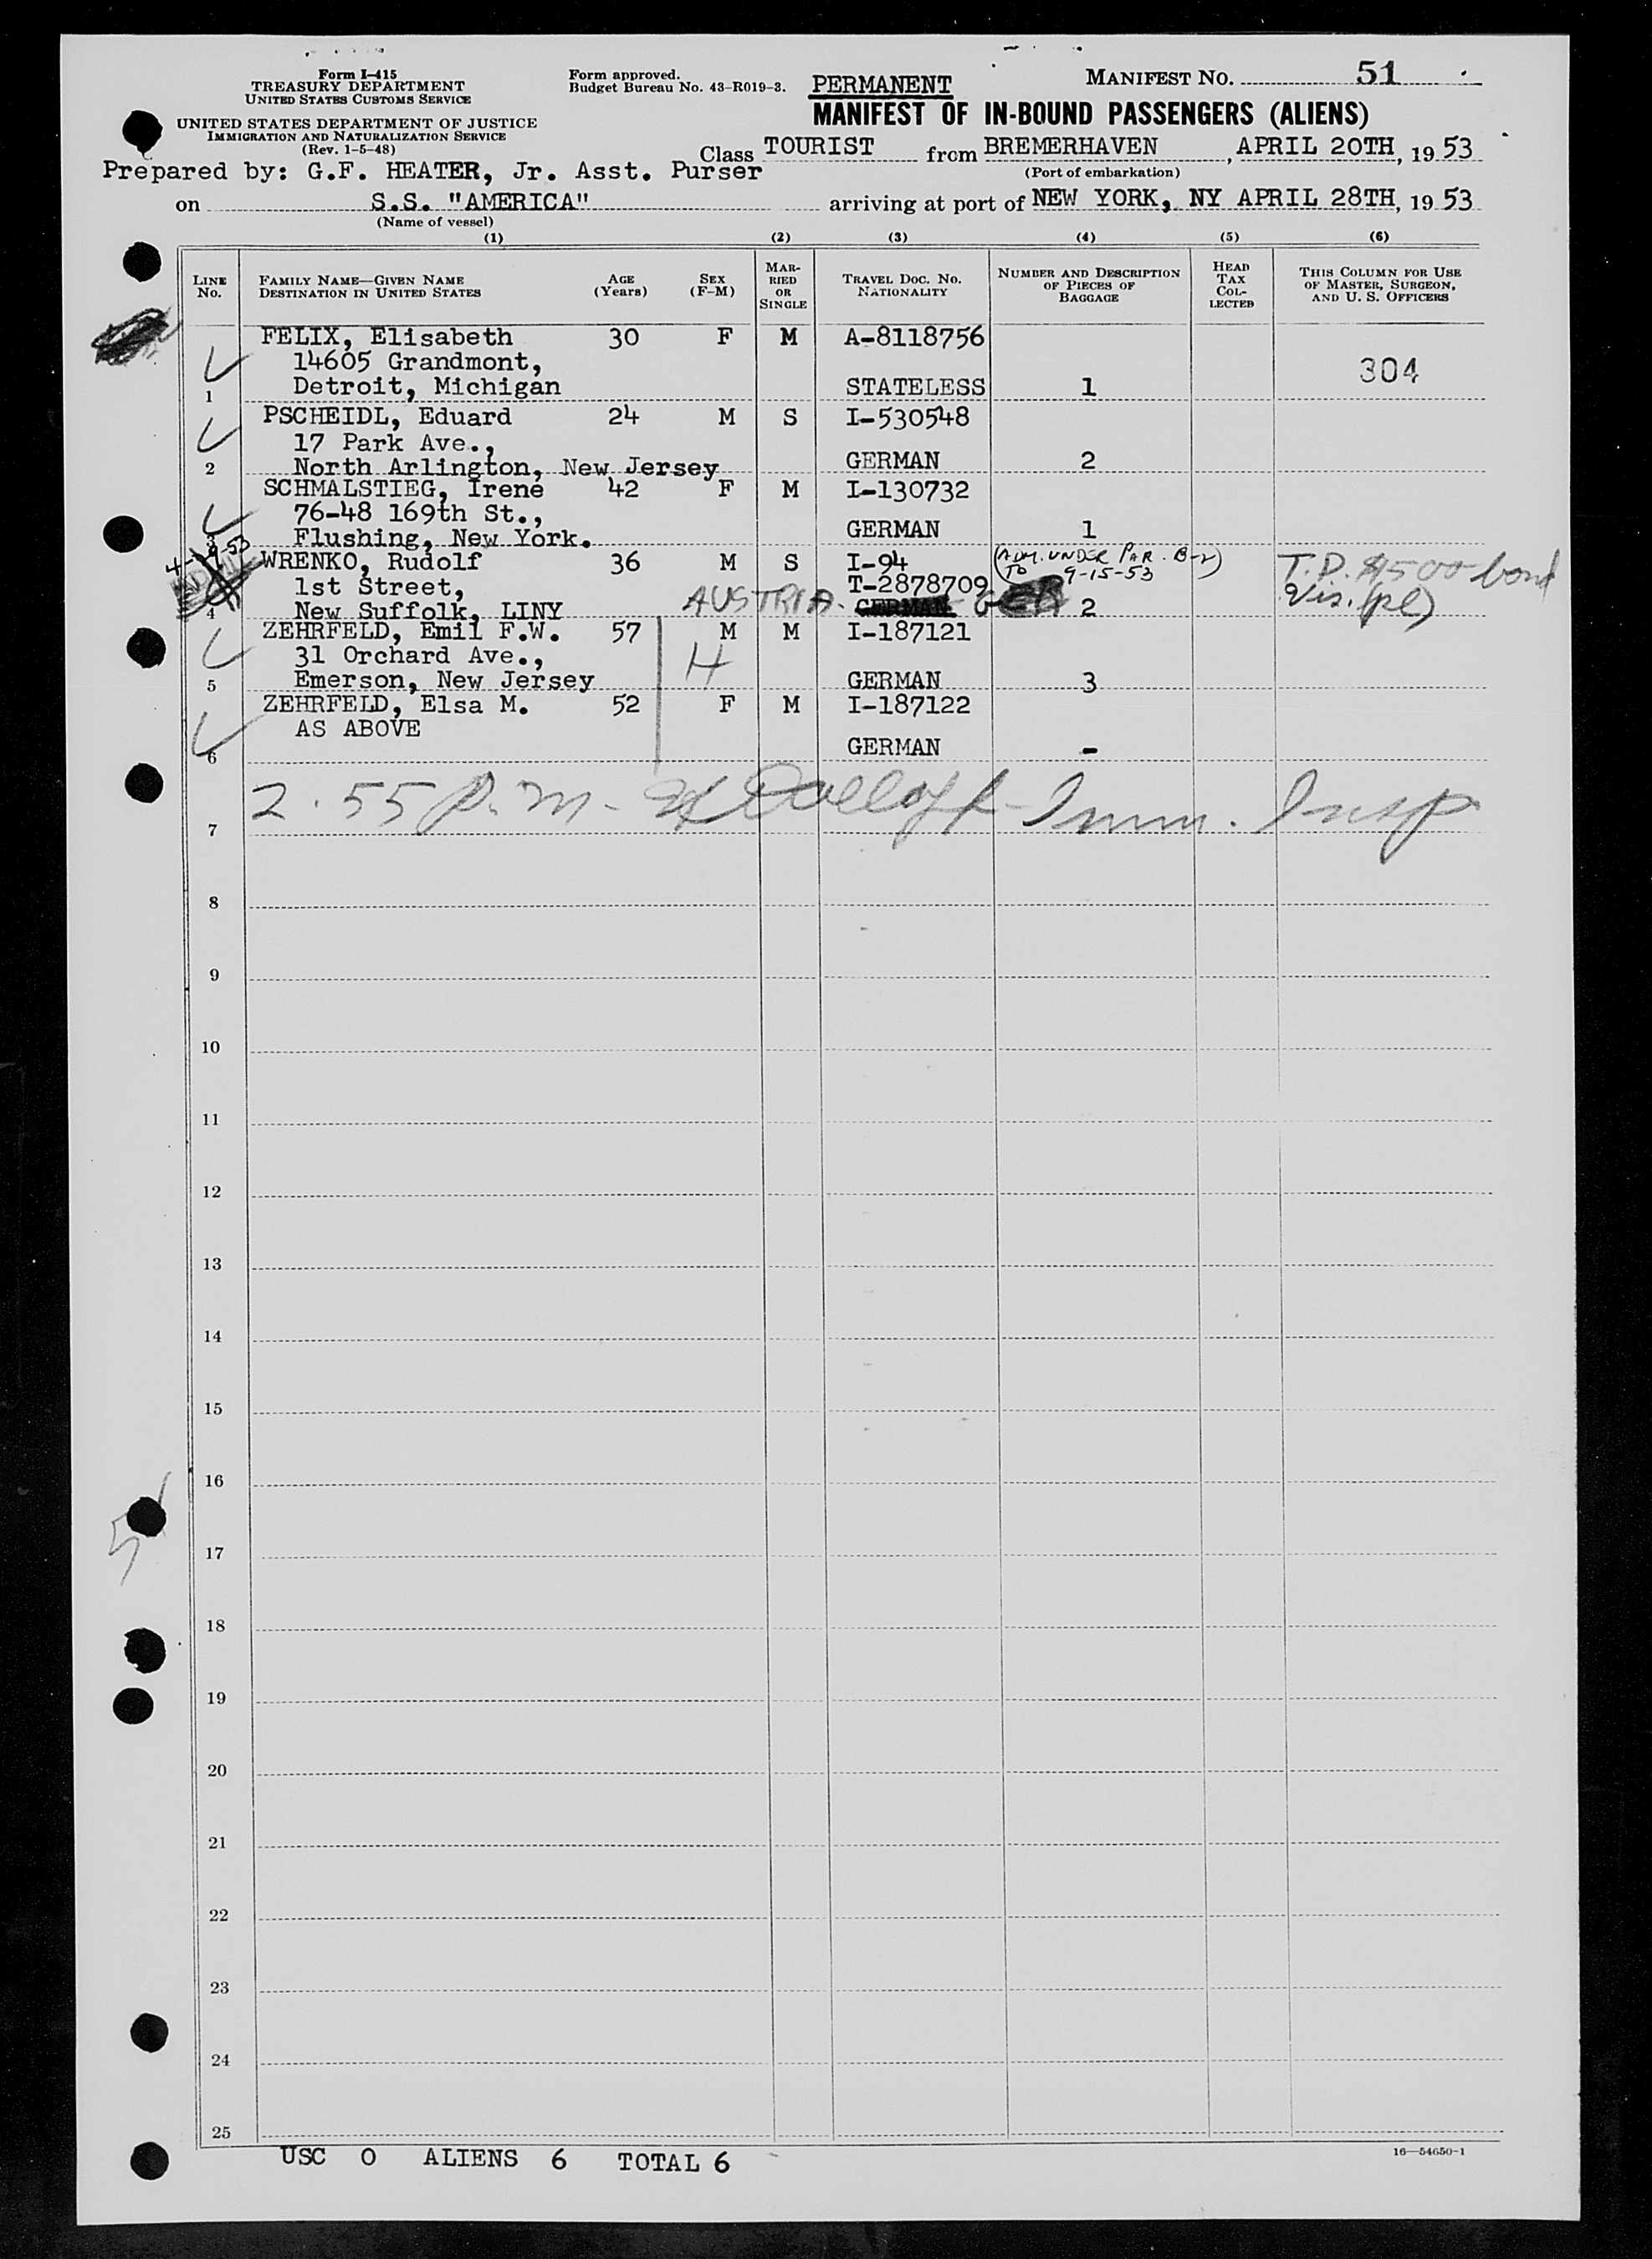 Form I-415
TREASURY DEPARTMENT
UNITED STATES CUSTOMS SERVICE
UNITED STATES DEPARTMENT OF JUSTICE
IMMIGRATION AND NATURALIZATION SERVICE
(Rev. 1-5-48)
Form approved.
Budget Bureau No. 43-R019-3.
PERMANENT
MANIFEST NO. 51
MANIFEST OF IN-BOUND PASSENGERS (ALIENS)
Class TOURIST from BREMERHAVEN, APRIL 20TH, 1953
(Port of embarkation)
Prepared by: G.F. HEATER, Jr. Asst. Purser
on S.S. "AMERICA" arriving at port of NEW YORK, NY APRIL 28TH, 1953
(Name of vessel)
(1) (2) (3) (4) (5) (6)
LINE No. FAMILY NAME—GIVEN NAME DESTINATION IN UNITED STATES AGE (Years) SEX (F-M) MARRIED OR SINGLE TRAVEL DOC. NO. NATIONALITY NUMBER AND DESCRIPTION OF PIECES OF BAGGAGE HEAD TAX COLLECTED THIS COLUMN FOR USE OF MASTER, SURGEON, AND U. S. OFFICERS
FELIX, Elisabeth 30 F M A-8118756
14605 Grandmont, 304
1 Detroit, Michigan STATELESS 1
PSCHEIDL, Eduard 24 M S I-530548
17 Park Ave.,
2 North Arlington, New Jersey GERMAN 2
SCHMALSTIEG, Irene 42 F M I-130732
76-48 169th St.,
3 Flushing, New York. GERMAN 1
WRENKO, Rudolf 36 M S I-94 (ADM. UNDER PAR. B-2) T.D. $500 bond
1st Street, T-2878709 TO 9-15-53 Vis. (pl)
4 New Suffolk, LINY AUSTRIA. GERMAN GER 2
ZEHRFELD, Emil F.W. 57 M M I-187121
31 Orchard Ave., H
5 Emerson, New Jersey GERMAN 3
ZEHRFELD, Elsa M. 52 F M I-187122
AS ABOVE
6 GERMAN -
2.55 P.M - Imm. Insp
7
8
9
10
11
12
13
14
15
16
17
18
19
20
21
22
23
24
25
USC 0 ALIENS 6 TOTAL 6
16—54650-1
51